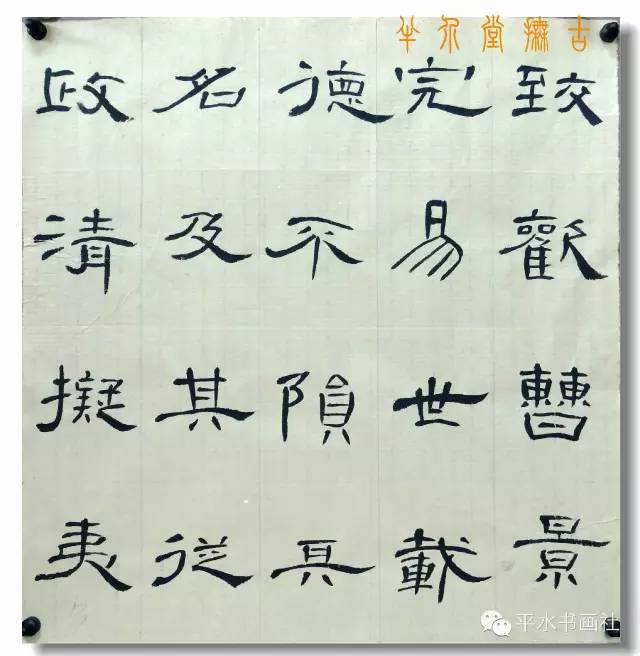 半 堂橅古
致歡曹景
完易世載
德不隕其
名及其從
政清擬夷
平水书画社